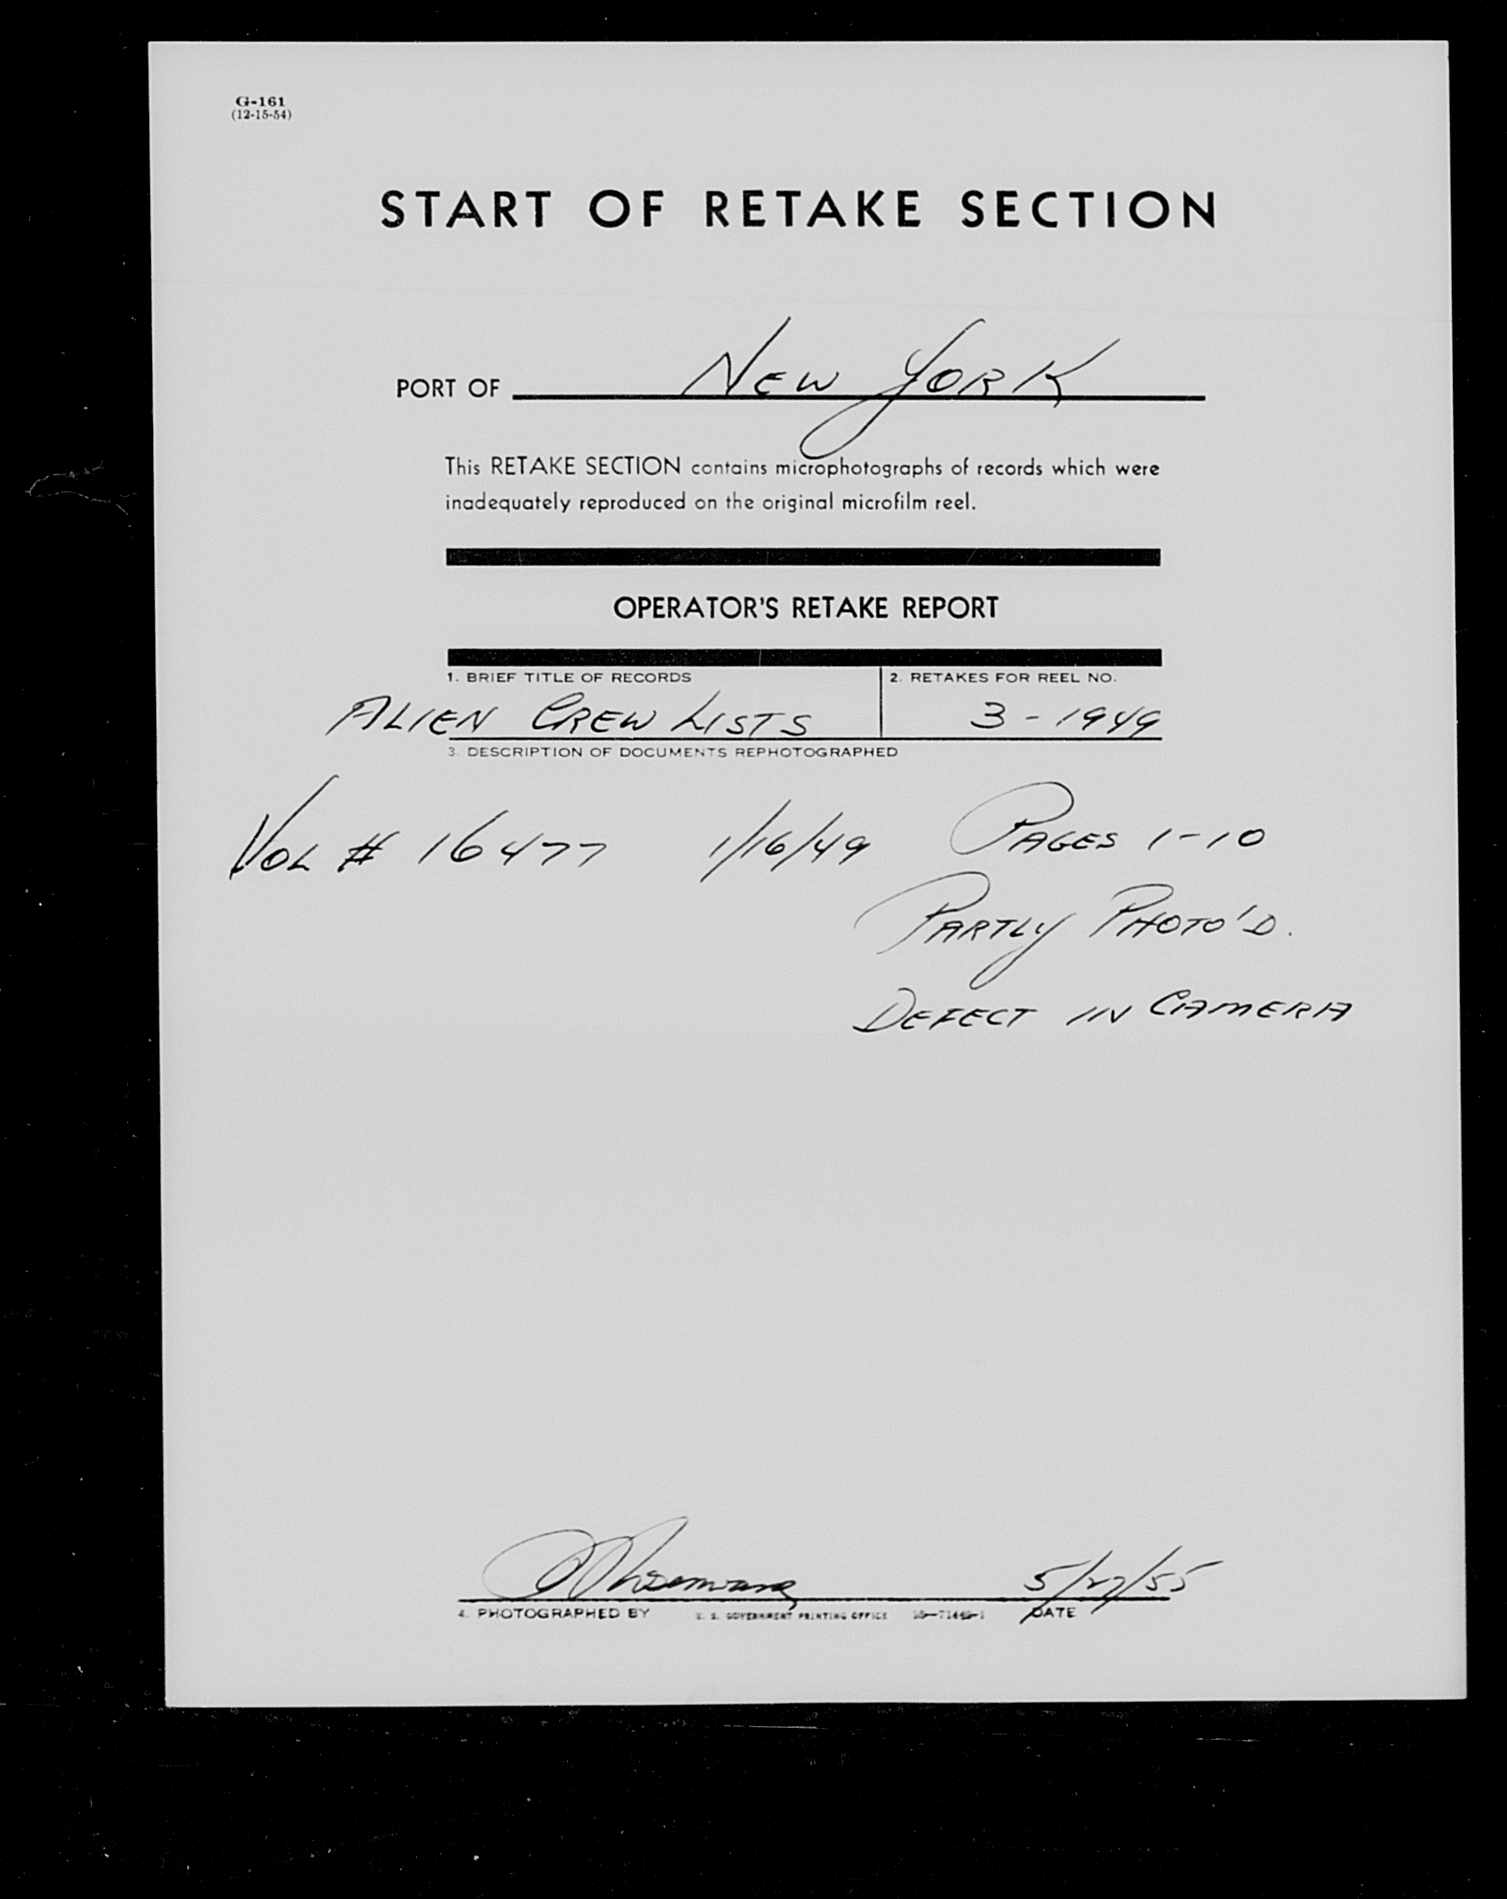 G-161
(12-15-54)
START OF RETAKE SECTION
PORT OF NEW YORK
This RETAKE SECTION contains microphotographs of records which were
inadequately reproduced on the original microfilm reel.
OPERATOR'S RETAKE REPORT
1. BRIEF TITLE OF RECORDS 2. RETAKES FOR REEL NO.
ALIEN CREW LISTS 3-1949
3. DESCRIPTION OF DOCUMENTS REPHOTOGRAPHED
VOL # 16477 1/16/49 PAGES 1-10
PARTLY PHOTO'D.
DEFECT IN CAMERA
5/27/55
4. PHOTOGRAPHED BY U. S. GOVERNMENT PRINTING OFFICE DATE